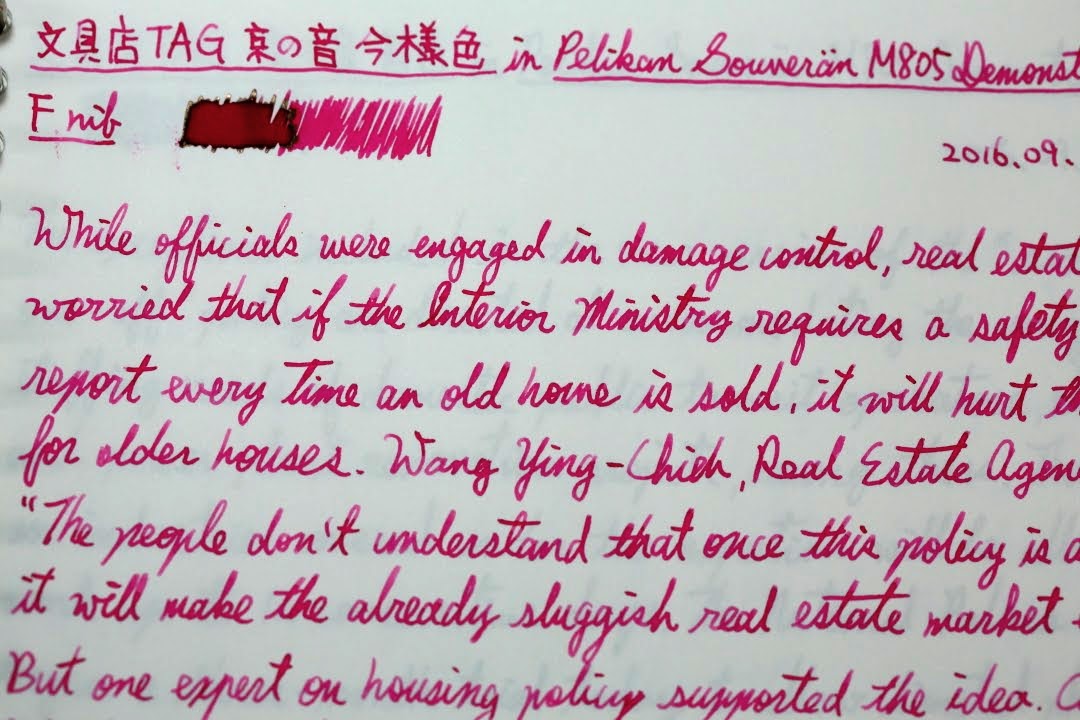 文具店TAG 京の音 今様色 in Pelikan Souverän M805 Demonst
F nib
2016.09.
While officials were engaged in damage control, real estat
worried that if the Interior Ministry requires a safety
report every time an old home is sold, it will hurt th
for older houses. Wang Ying-Chieh, Real Estate Agen
"The people don't understand that once this policy is a
it will make the already sluggish real estate market
But one expert on housing policy supported the idea. C